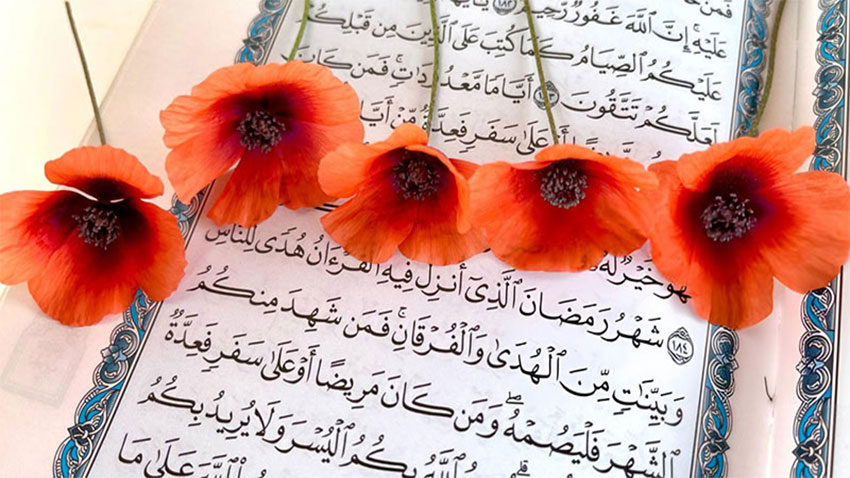 فَمَنْ خَا
عَلَيْهِ ۚ إِنَّ ٱللَّهَ غَفُورٌ رَّحِيمٌ ١٨٢ يَٰٓأَيُّهَا
عَلَيْكُمُ ٱلصِّيَامُ كَمَا كُتِبَ عَلَى ٱلَّذِينَ مِن قَبْلِكُمْ
لَعَلَّكُمْ تَتَّقُونَ ١٨٣ أَيَّامًا مَّعْدُودَٰتٍ ۚ فَمَن كَانَ
أَوْ عَلَىٰ سَفَرٍ فَعِدَّةٌ مِّنْ أَيَّا
هُوَ خَيْرٌ لَّهُۥ
١٨٤ شَهْرُ رَمَضَانَ ٱلَّذِىٓ أُنزِلَ فِيهِ ٱلْقُرْءَانُ هُدًى لِّلنَّاسِ
وَبَيِّنَٰتٍ مِّنَ ٱلْهُدَىٰ وَٱلْفُرْقَانِ ۚ فَمَن شَهِدَ مِنكُمُ
ٱلشَّهْرَ فَلْيَصُمْهُ ۖ وَمَن كَانَ مَرِيضًا أَوْ عَلَىٰ سَفَرٍ فَعِدَّةٌ
ٱللَّهُ بِكُمُ ٱلْيُسْرَ وَلَا يُرِيدُ بِكُمُ
ٱللَّهَ عَلَىٰ مَا